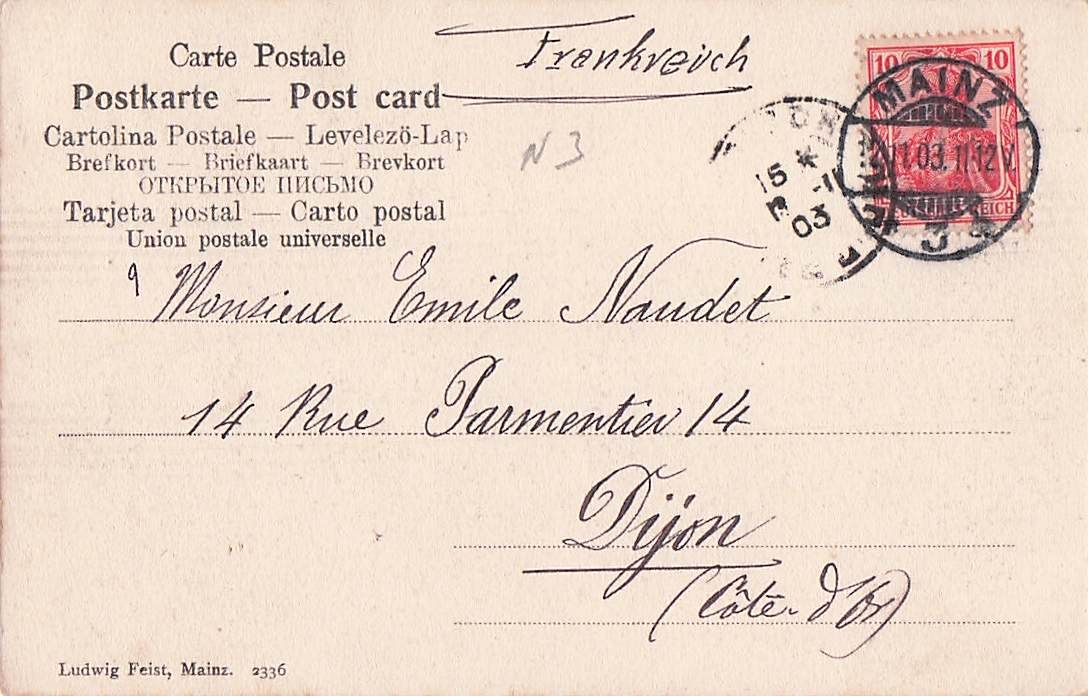 Carte Postale
Postkarte — Post card
Cartolina Postale — Levelező-Lap
Brefkort — Briefkaart — Brevkort
ОТКРЫТОЕ ПИСЬМО
Tarjeta postal — Carto postal
Union postale universelle
Frankreich
N3
10 10
MAINZ
11.03. 11-12V.
3
15
-11
03
Monsieur Emile Naudet
14 Rue Parmentier 14
Dijon
(Côte-d'Or)
Ludwig Feist, Mainz. 2336